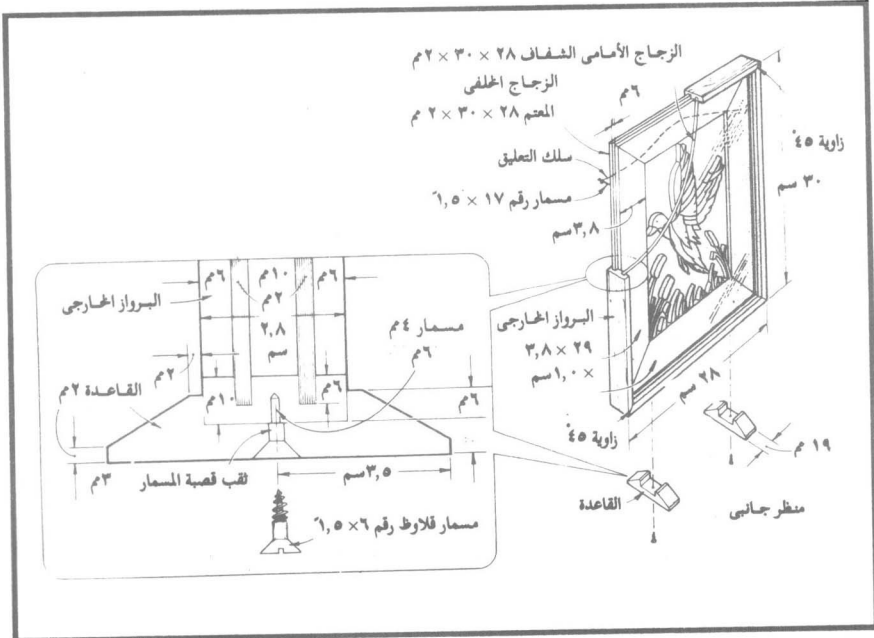 الزجاج الأمامى الشفاف ٢٨ × ٣٠ × ٢مم
الزجاج الخلفى
المعتم ٢٨ × ٣٠ × ٢ مم
٦مم
سلك التعليق
مسمار رقم ١٧ × ١,٥ً
٣,٨سم
زاوية ٤٥ْ
٣٠ سم
البرواز الخارجى
٢٩ × ٣,٨
× ١,٠سم
٢٨ سم
زاوية ٤٥ْ
١٩ مم
القاعدة
منظر جانبى
٦مم
١٠مم
٦مم
٢مم
البرواز الخارجى
٢,٨
سم
مسمار ٤مم
٦مم
٢مم
القاعدة ٢مم
١٠مم
٦مم
٦مم
٣مم
ثقب قصبة المسمار
٣,٥سم
مسمار قلاوظ رقم ٦ × ١,٥ً